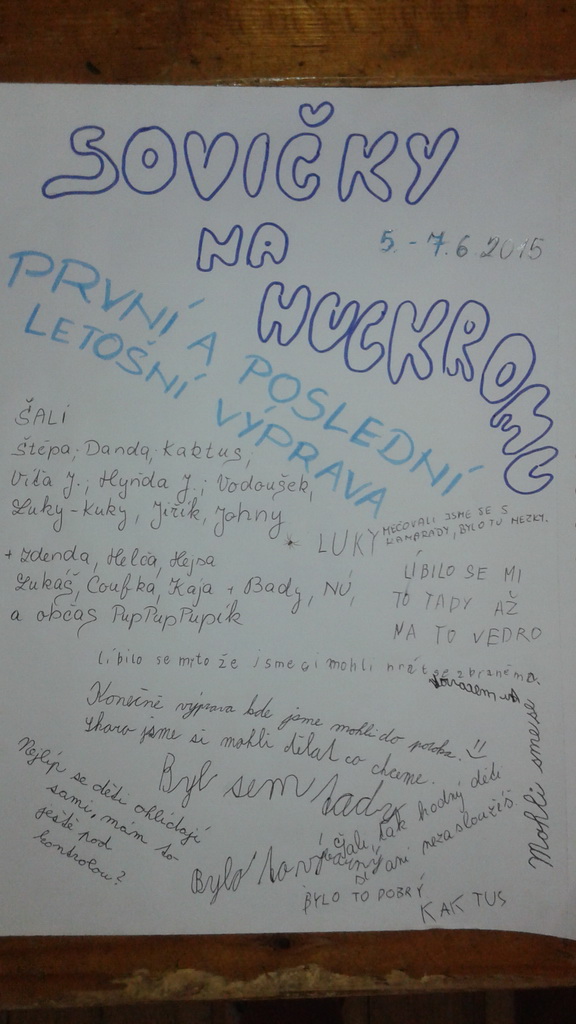 SOVIČKY
NA
HUCKROMC
5. - 7.6 2015
PRVNÍ A POSLEDNÍ
LETOŠNÍ VÝPRAVA
ŠALÍ
Štěpa, Danda, Kaktus,
Víťa J., Hynda J., Vodoušek,
Luky-Kuky, Jiřík, Johny
+ Zdenda, Helča, Hejsa
Lukáš, Coufka, Kaja + Bady, NÚ,
a občas PupPupPupík
LUKY
MEČOVALI JSME SE S
KAMARÁDY, BYLO TU HEZKY.
LÍBILO SE MI
TO TADY AŽ
NA TO VEDRO
líbilo se mi to že jsme si mohli hrát se zbraněma.
Konečně výprava kde jsme mohli do potoka. !!
skoro jsme si mohli dělat co chceme.
Mohli sme se
Byl sem rád
Nejlíp se děti ohlídají
sami, mám to
ještě pod
kontrolou?
Bylo to
tak hodný děti
si ani nezasloužíš
BYLO TO DOBRÝ
KAKTUS